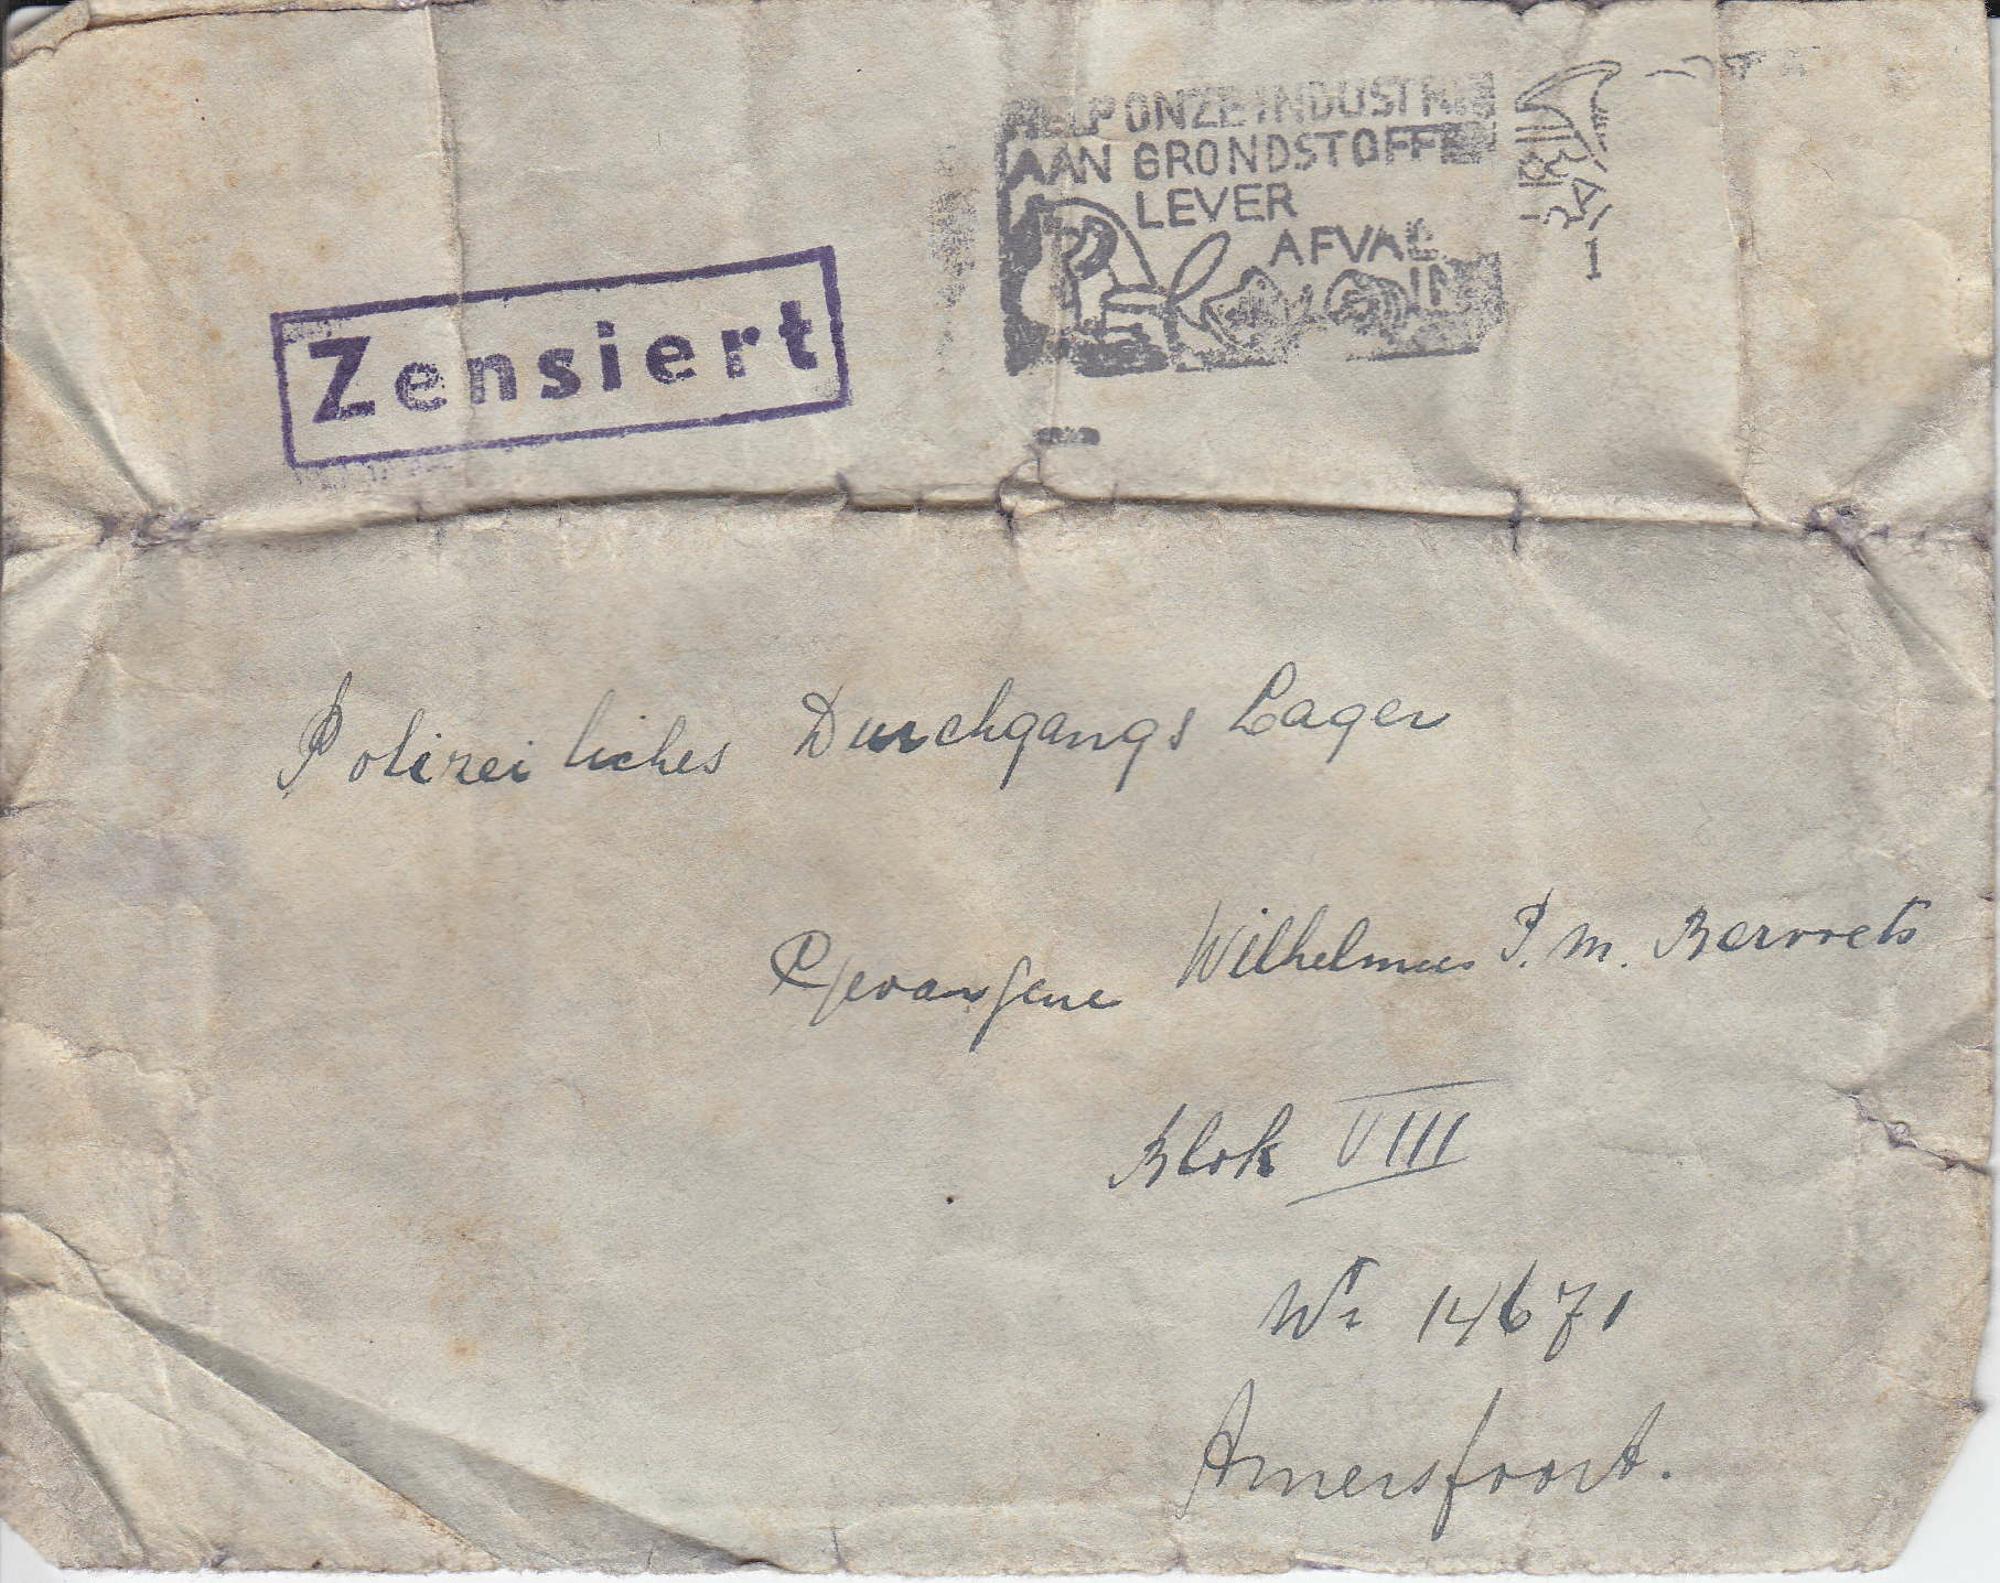 HELP ONZE INDUSTRIE
AAN GRONDSTOFFEN
LEVER
AFVAL
IN
1
Zensiert
Polizeiliches Durchgangs Lager
Gevangene Wilhelmus P. M. Bervoets
Blok VIII
Nr 14671
Amersfoort.